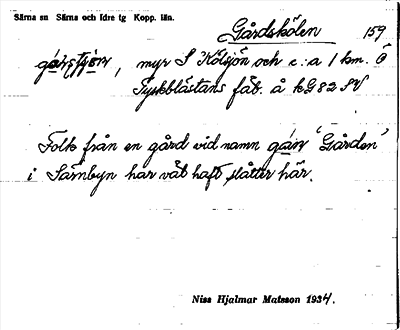 Särna sn Särna och Idre tg Kopp. län.
Gårdskölen 159
, myr S Kölsjön och c:a 1 km. Ö
Fyskblästans fäb. å kG 82 SV
Folk från en gård vid namn gán 'Gården'
i Särnbyn har vât haft slåtter här.
Niss Hjalmar Matsson 1934.